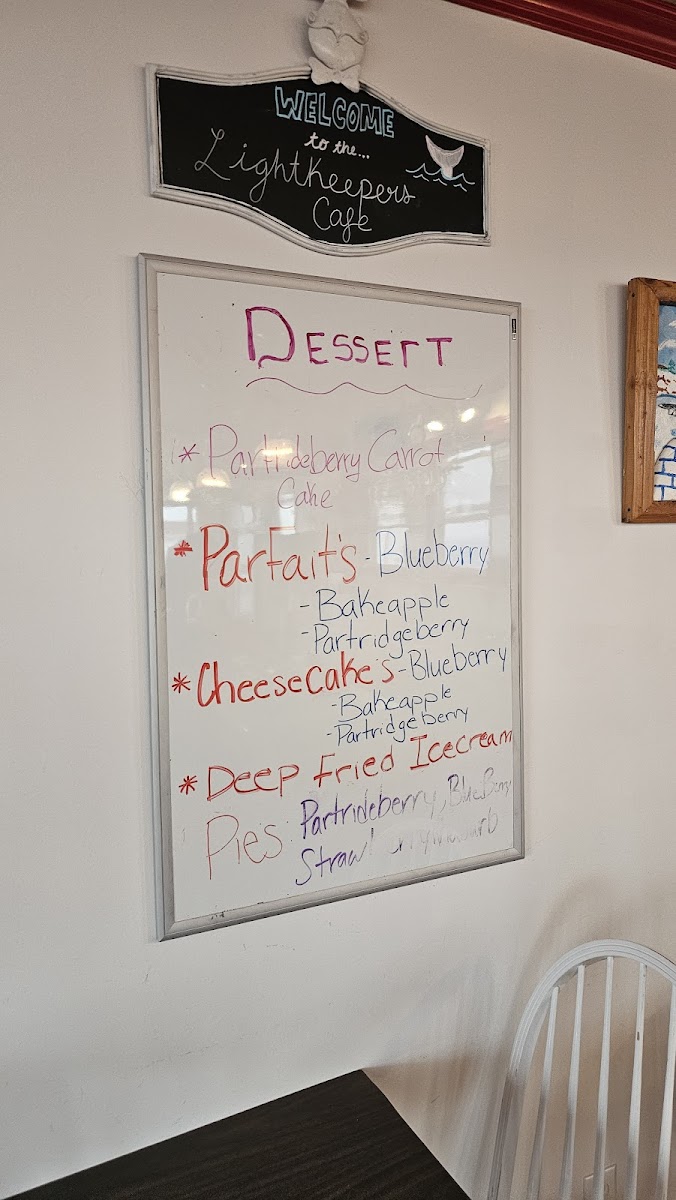 WELCOME
to the...
LightKeepers
Cafe
DESSERT
* Partrideberry Carrot
Cake
* Parfait's - Blueberry
- Bakeapple
- Partridgeberry
* Cheesecake's - Blueberry
- Bakeapple
- Partridgeberry
* Deep Fried Icecream
Pies: Partrideberry, BlueBerry